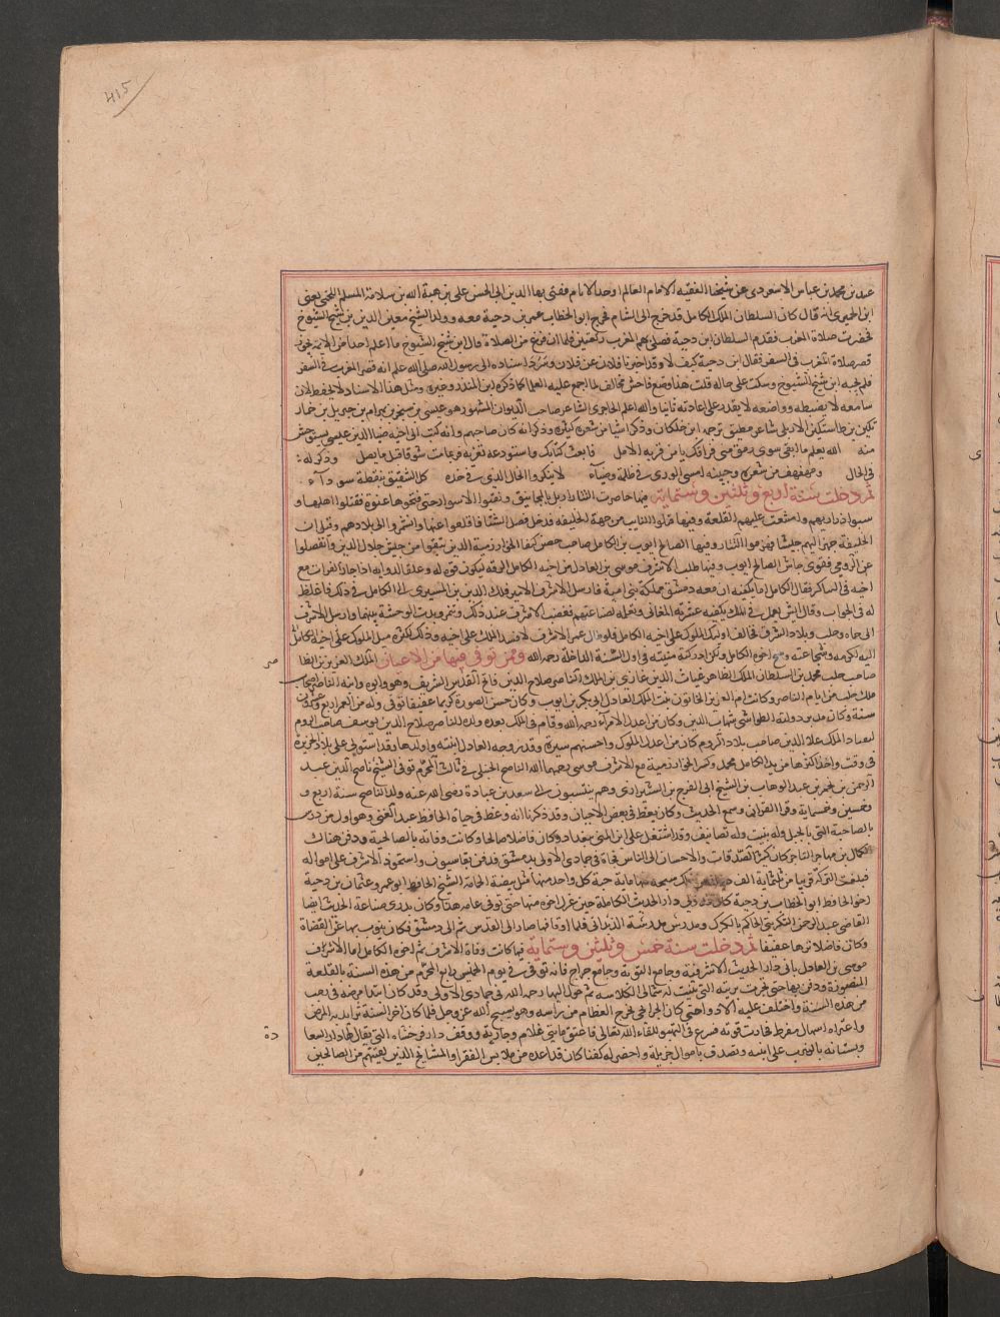 415
عبد بن محمد بن عباس الاسعردي عن شيخنا الفقيه الامام العالم اوحد الانام مفتي بهاالدين ابي الحسن علي بن هبة الله بن سلامة المسلم اللخمي يعني
ابن الحميري انه قال كان السلطان الملك الكامل قد خرج الى الشام فخرج ابو الخطاب عمر بن دحية معه وولد الشيخ معين الدين بن شيخ الشيوخ
فحضرت صلاة المغرب فقدم السلطان ابن دحية فصلى بهم المغرب ركعتين فلما ان فرغ من الصلاة قال ابن شيخ الشيوخ ما اعلم احدا من الايمة جوز
قصر صلاة المغرب في السفر فقال ابن دحية كيف لا وقد اخبرنا فلان عن فلان وسرد اسناده الى رسول الله صلى الله عليه انه قصر المغرب في السفر
فلم يجبه ابن شيخ الشيوخ وسكت على حاله قلت هذا وضع فاحش مخالف لما اجمع عليه العلما كما ذكره ابن المنذر وغيره ومثل هذا الاسناد لا يحفظ لان
سامعه لا يضبطه وواضعه لا يقدر على اعادته ثانيا والله اعلم الحاجري الشاعر صاحب الديوان المشهور هو عيسى بن سنجر بن بهرام بن جبريل بن خمار
تكين بن طاستكين الاربلي شاعر مطبق ترجمه ابن خلكان وذكر اشيا من شعره كثيرة وذكر انه كان صاحبهم وانه كتب الى اخيه ضيا الدين عيسى يستوحش
منه الله يعلم ما ابقى سوى رمق مني فراقك يا من قربه الامل فابعث كتابك واستودعه تعزية فربما مت شوقا قبل ما يصل وذكر له
في الخال ومهفهف من شعره وجبينه امسى الورى في ظلمة وضياء لا ينكروا الخال الذي في خده كل الشقيق بنقطة سوداء
ثم دخلت سنة اربع وثلثين وستماية فيها حاصرت التتار اربل بالمجانيق ونقبوا الاسوار حتى فتحوها عنوة فقتلوا اهلها و
سبوا ذراريهم وامتنعت عليهم القلعة وفيها النايب من جهة الخليفة فدخل فصل الشتا فاقلعوا عنها وانشمروا الى بلادهم وقيل ان
الخليفة جهز اليهم جيشا فهزموا التتار وفيها الصالح ايوب بن الكامل صاحب حصن كيفا الخوارزمية الذين تبقوا من جيش جلال الدين وانفصلوا
عن الرومي فقوي جاش الصالح ايوب وفيها طلب الاشرف موسى بن العادل من اخيه الكامل الرقة ليكون قوة له وعلف الدوابه اذا جاز الفرات مع
اخيه في البيكار فقال الكامل اما يكفيه ان معه دمشق مملكة بني امية فارسل الاشرف الامير فلك الدين بن المسيري الى الكامل في ذلك فاغلظ
له في الجواب وقال ايش يعمل في الملك يكفيه عشرته المغاني وتعلمه لصناعتهم فغضب الاشرف عند ذلك وتنمر وبدت الوحشة بينهما وارسل الاشرف
الى حماه وحلب وبلاد الشرق فحالف اوليك الملوك على اخيه الكامل فلو طال عمر الاشرف لافسد الملك على اخيه وذلك لكثرة ميل الملوك على اخيه الكامل
اليه لكرمه وشجاعته وشح اخوه الكامل ولكن ادركته منيته في اول السنة الداخلة رحمه الله وممن توفي فيها من الاعيان الملك العزيز بن الظا
صاحب حلب محمد بن السلطان الملك الظاهر غياث الدين غازي بن الملك الناصر صلاح الدين فاتح القدس الشريف وهو وابوه وابنه الناصر اصحاب
ملك حلب من ايام الناصر وكانت ام العزيز الخاتون بنت الملك العادل ابي بكر بن ايوب وكان حسن الصورة كريما عفيفا توفي وله من العمر اربع وعشرون
سنة وكان مدبر دولته الطواشي شهاب الدين وكان من اعدل الامراء رحمه الله وقام في الملك بعده ولده الناصر صلاح الدين يوسف صاحب الروم
ليقباد الملك علا الدين صاحب بلاد الروم كان من اعدل الملوك واحسنهم سيرة وقد زوجه العادل ابنته واولدها وقد استولى على بلاد الجزيرة
في وقت واخذ اكثرها من يد الكامل محمد وكسر الخوارزمية مع الاشرف موسى رحمهما الله الناصح الحنبلي في ثالث المحرم توفي الشيخ ناصح الدين عبد
الرحمن بن نجم بن عبد الوهاب بن الشيخ ابي الفرج بن الشيرازي وهم ينتسبون الى سعد بن عبادة رضي الله عنه ولد الناصح سنة اربع و
وخمسين وخمسماية وقرا القران وسمع الحديث وكان يعظ في بعض الاحيان وقد ذكرنا انه وعظ في حياة الحافظ عبد الغني وهو اول من درس
بالصاحبة التي بالجبل وله بنيت وله تصانيف وقد اشتغل على ابن المني ببغداد وكان فاضلا صالحا وكانت وفاته بالصالحية ودفن هناك
الكمال بن مهاجر التاجر كان كثير الصدقات والاحسان الى الناس فجاة في جمادى الاولى بدمشق فدفن بقاسيون واستحوذ الاشرف على امواله
فبلغت التركة قريبا من ثلثماية الف دينار من ذلك سبحة فيها ماية حبة كل واحد منها مثل بيضة الحمامة الشيخ الحافظ ابو عمرو عثمان بن دحية
اخو الحافظ ابو الخطاب بن دحية كان قد ولي دار الحديث الكاملية حين عزل اخوه منها حتى توفي عامه هذا وكان يدري صناعة الحديث ايضا
القاضي عبد الرحمن التكريتي الحاكم بالكرك ومدرس مدرسة الزبداني فلما اوقافها صار الى القدس ثم الى دمشق فكان ينوب بها عن القضاة
وكان فاضلا نزها عفيفا ثم دخلت سنة خمس وثلثين وستماية فيها كانت وفاة الاشرف ثم اخوه الكامل اما الاشرف
موسى بن العادل باني دار الحديث الاشرفية وجامع التوبة وجامع جراح فانه توفي في يوم الخميس رابع المحرم من هذه السنة بالقلعة
المنصورة ودفن بها حتى نجزت تربته التي بنيت له شمالي الكلاسة ثم حول اليها رحمه الله في جمادى الاولى وقد كان ابتدا مرضه في رجب
من هذه السنة واختلف عليه الادوا حتى كان الجرايحي يخرج العظام من راسه وهو يسبح الله عز وجل فلما كان اخر السنة تزايد به المرض
واعتراه اسهال مفرط فخارت قوته فشرع في التهيو للقاء الله تعالى فاعتق مايتي غلام وجارية ووقف دار فرخشاه التي يقال لها دار السعا
وبستانه بالنيرب على ابنته وتصدق باموال جزيلة واحضر له كفنا كان قد اعده من ملابس الفقرا والمشايخ الذين لقيهم من الصالحين
هر
دة